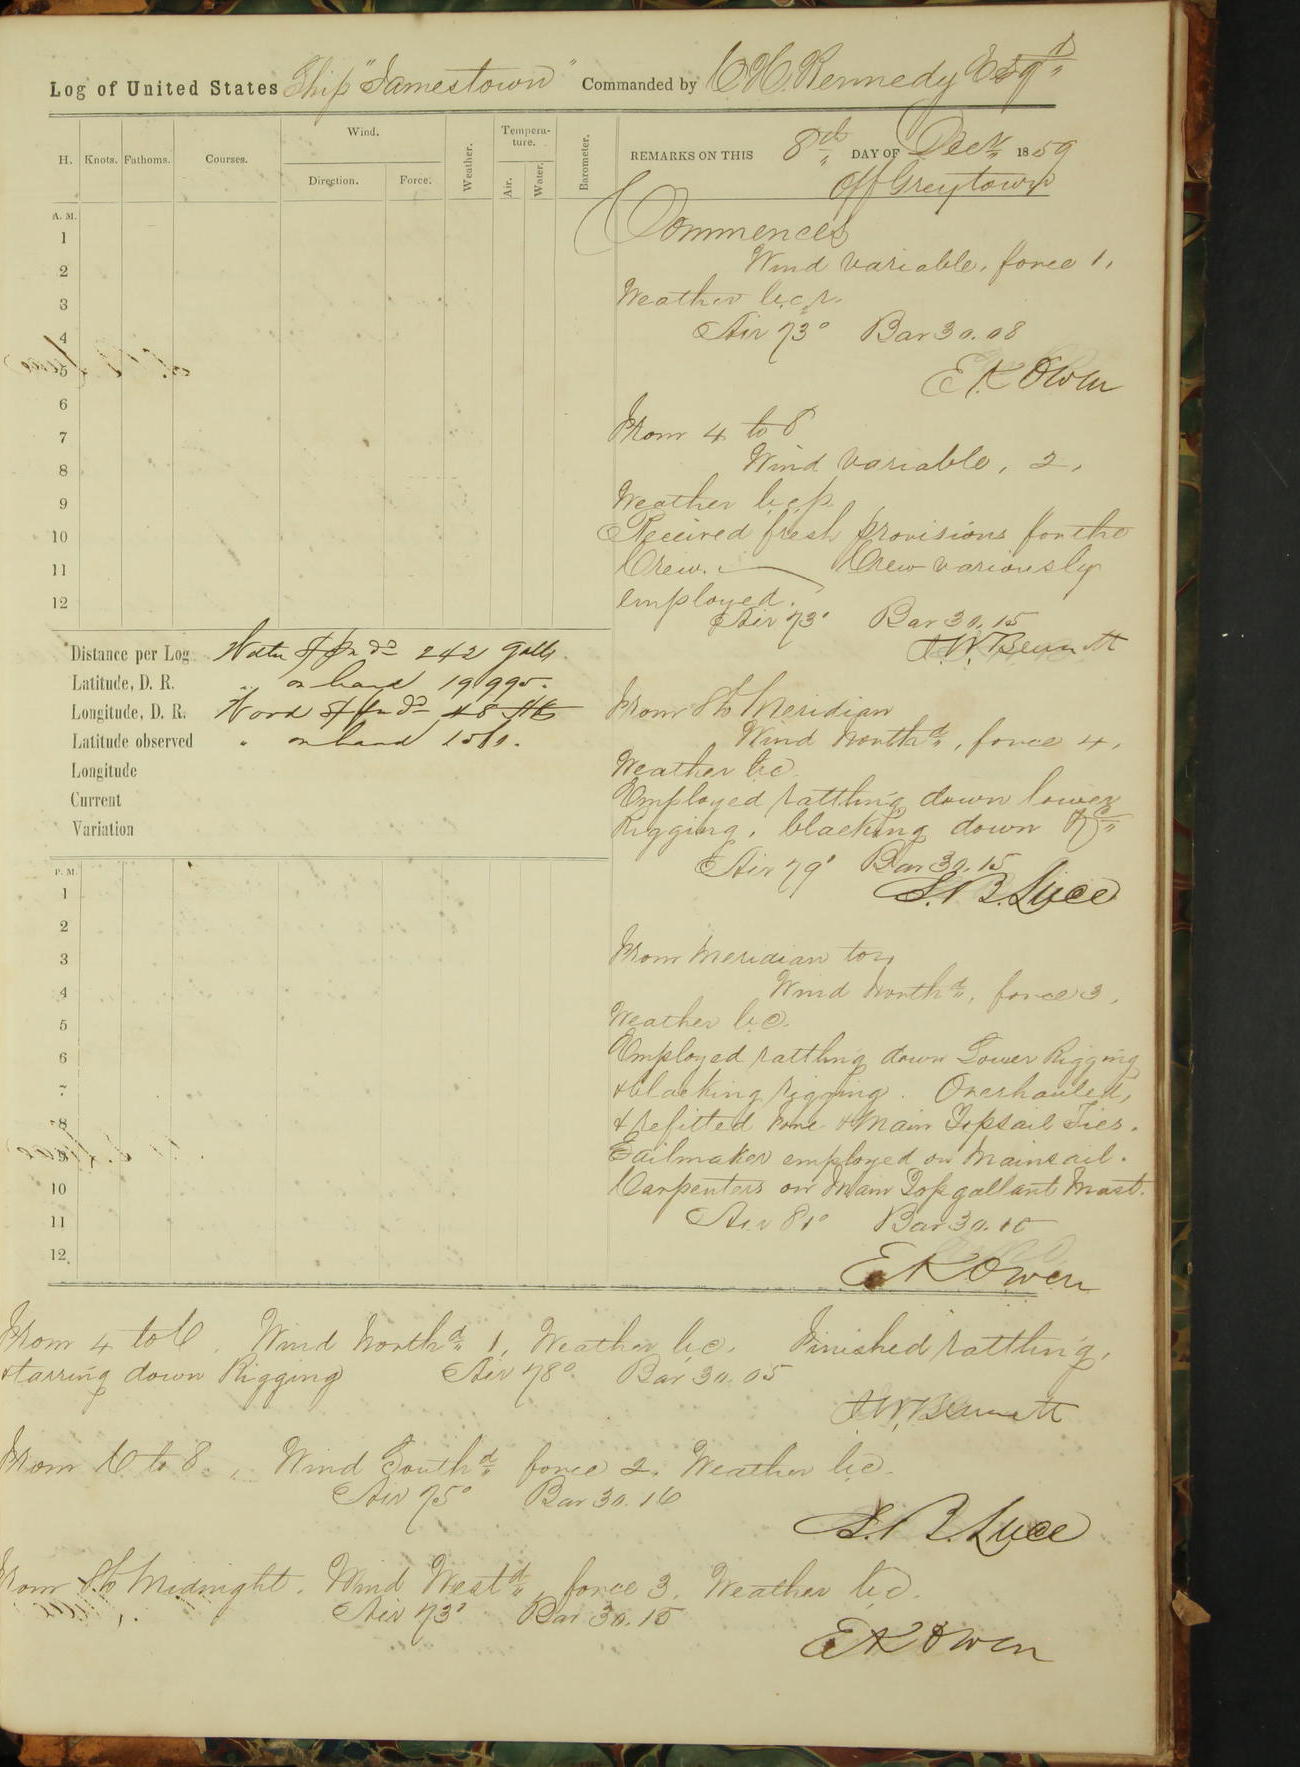 Log of United States Ship "Jamestown" Commanded by C H. Kennedy Esqr
H. Knots. Fathoms. Courses. Wind. Direction. Force. Weather. Temperature. Air. Water. Barometer.
REMARKS ON THIS 8th DAY OF Decr 1859
Off Greytown
A. M.
1
2
3
4
5
6
7
8
9
10
11
12
Commences
Wind variable, force 1,
Weather b.c.r.
Air 73° Bar 30.08
E K Owen
From 4 to 8
Wind variable, 2,
Weather b.c.p.
Received fresh provisions for the
Crew. — Crew variously
employed.
Air 73° Bar 30.15
J. W. Bennett
Distance per Log Water Expd 242 galls.
Latitude, D. R. " on hand 19,995.
Longitude, D. R. Wood Expd 48 Stks
Latitude observed " on hand
Longitude
Current
Variation
From 8 to Meridian
Wind Northd, force 4,
Weather b.c.
Employed rattling down lower
Rigging, blacking down
Air 79° Bar 30.15
S. B. Luce
P. M.
1
2
3
4
5
6
7
8
9
10
11
12
From Meridian to 4
Wind Northd, force 3,
Weather b.c.
Employed rattling down Lower Rigging
& blacking rigging. Overhauled,
& refitted Fore & Main Topsail Ties.
Sailmaker employed on Mainsail.
Carpenters on Main Top gallant Mast.
Air 81° Bar 30.10
E K Owen
From 4 to 6, Wind Northd 1, Weather b.c. Finished rattling,
& tarring down Rigging Air 78° Bar 30.05
J. W. Bennett
From 6 to 8, Wind Southd force 2. Weather b.c.
Air 75° Bar 30.16
S. B. Luce
From 8 to Midnight. Wind Westd, force 3. Weather b.c.
Air 73° Bar 30.15
E K Owen